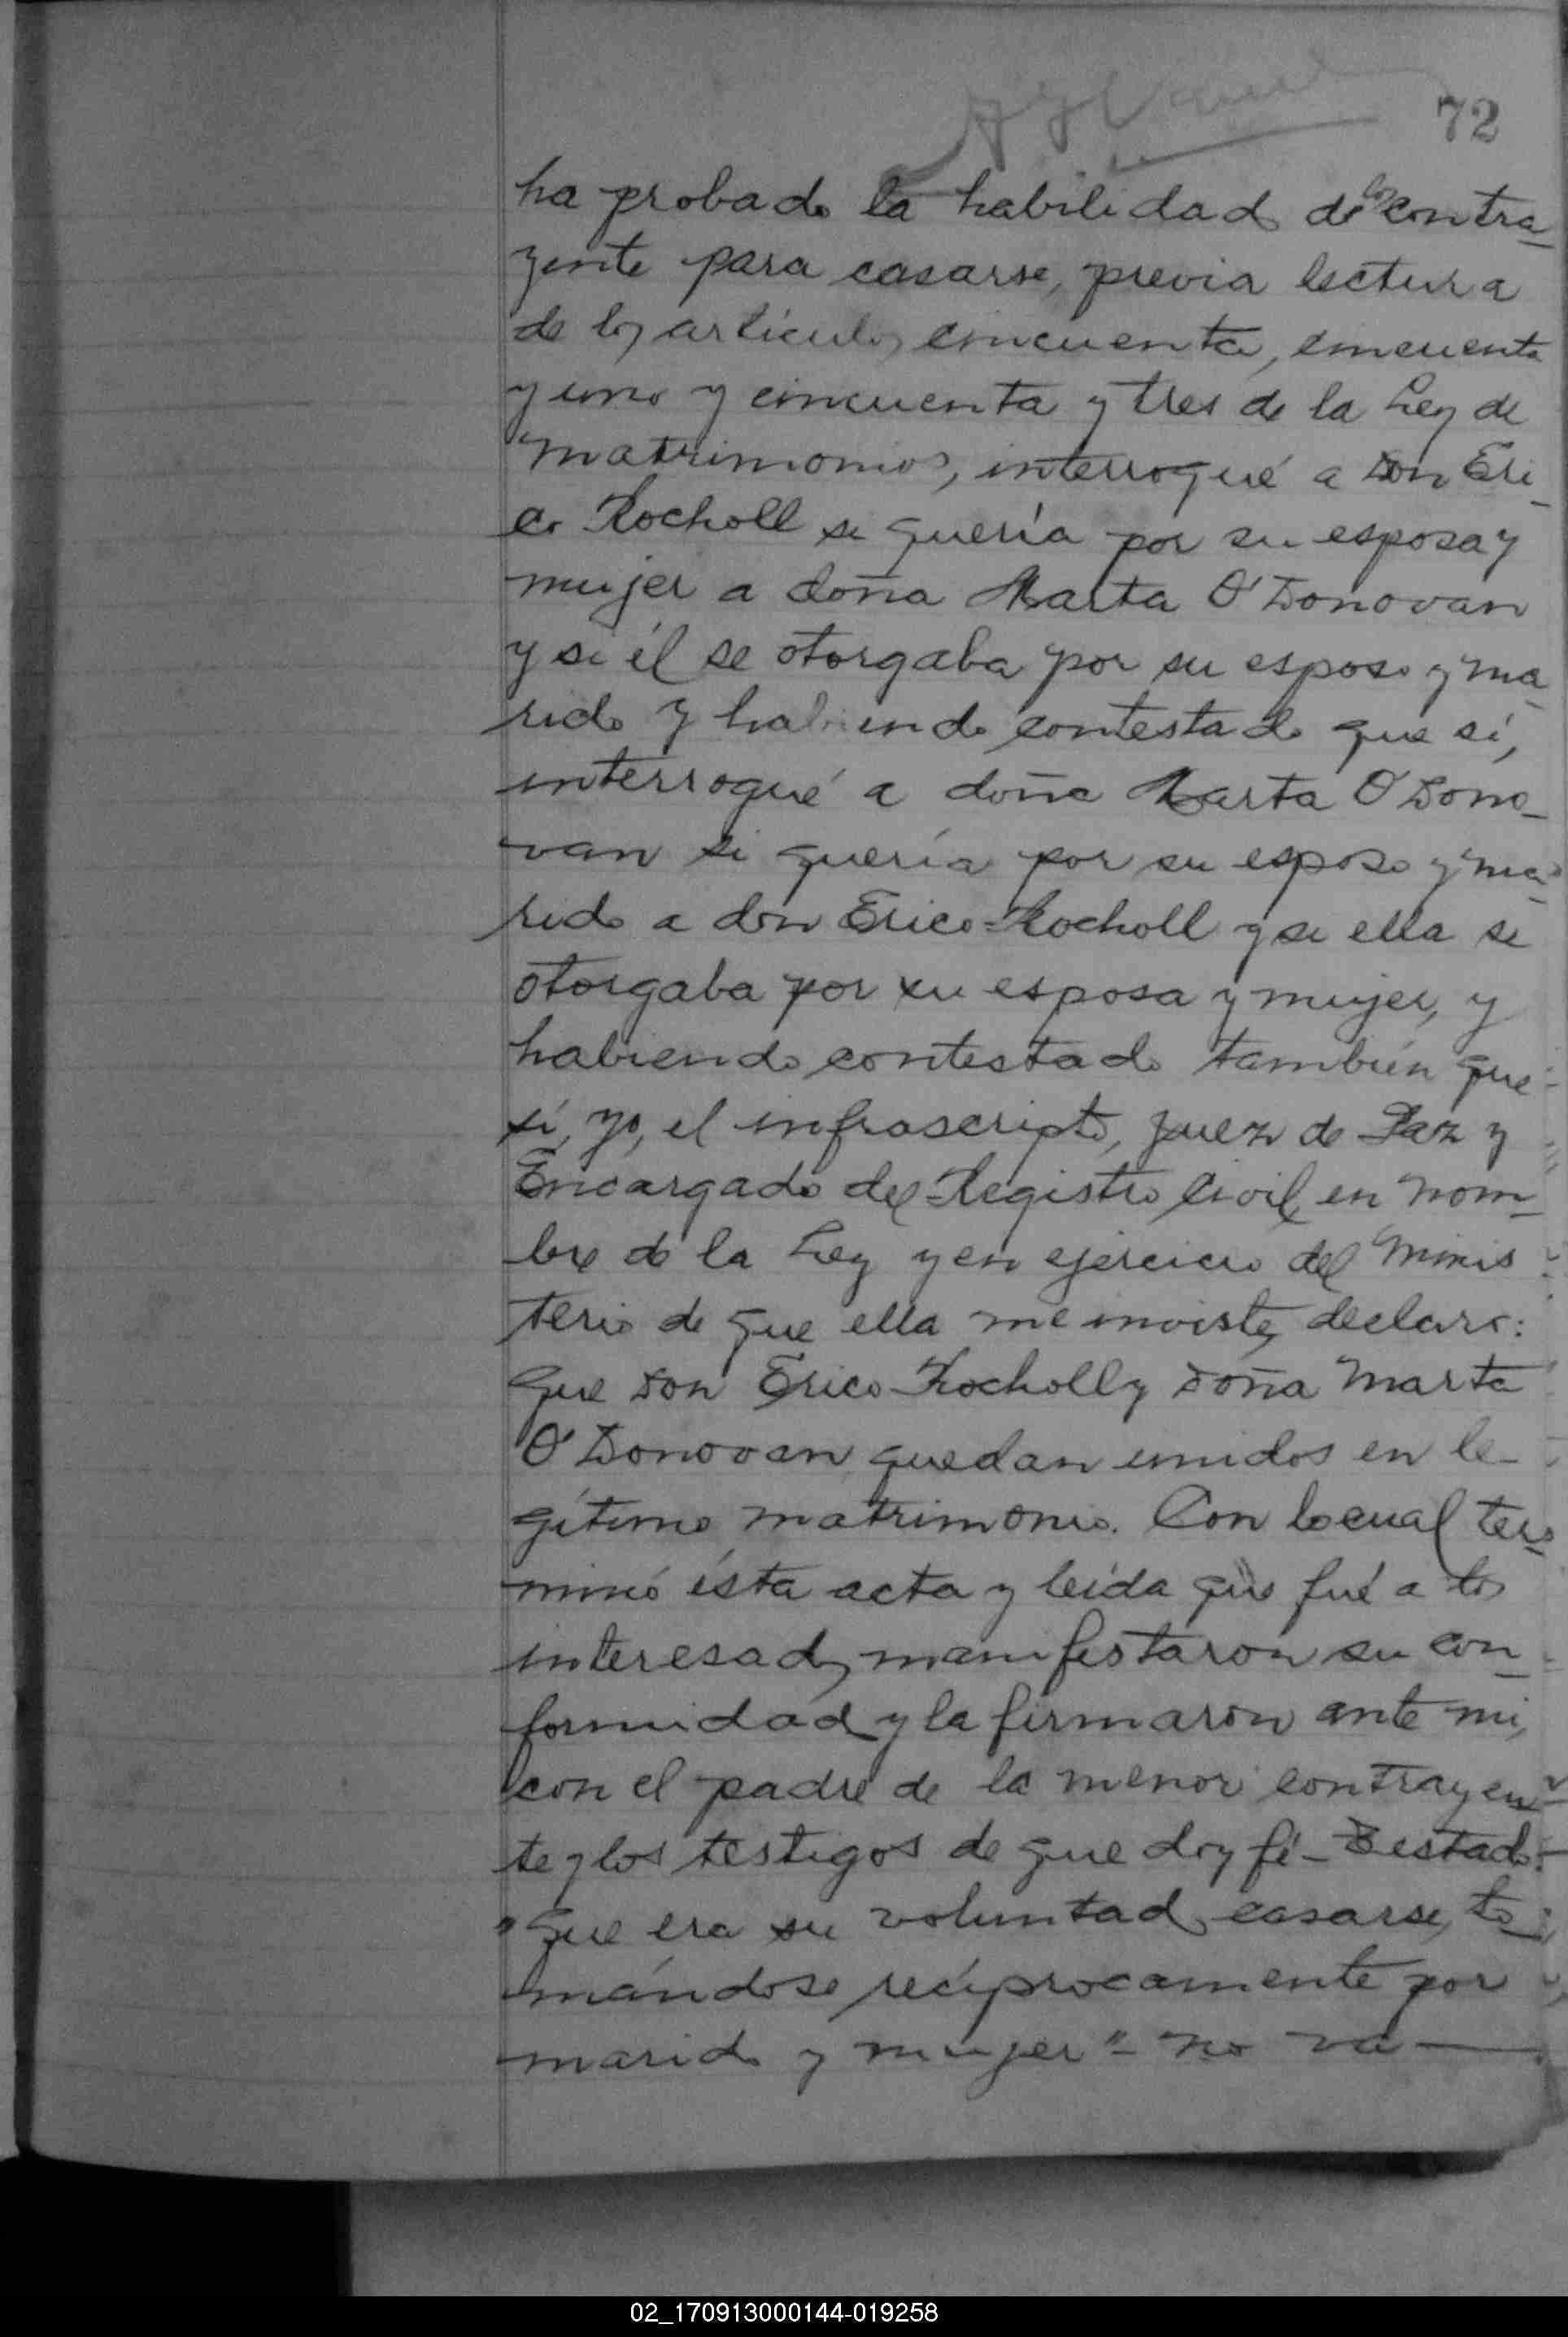 72
ha probado la habilidad de los contra-
yente para casarse, previa lectura
de los artículos cincuenta, cincuenta
y uno y cincuenta y tres de la Ley de
matrimonios, interrogué a Don Eri-
co Rocholl si quería por su esposa y
mujer a doña Marta O'Donovan
y si él se otorgaba por su esposo y ma-
rido y habiendo contestado que sí,
interrogué a doña Marta O'Dono-
van si quería por su esposo y ma-
rido a don Erico Rocholl y si ella se
otorgaba por su esposa y mujer, y
habiendo contestado también que
sí, yo, el infrascripto, Juez de Paz y
Encargado del Registro Civil, en nom-
bre de la Ley y en ejercicio del Minis
terio de que ella me inviste, declaro:
Que Don Erico Rocholl y Doña Marta
O'Donovan quedan unidos en le-
gítimo matrimonio. Con lo cual ter-
minó ésta acta y leída que fué a los
interesados manifestaron su con-
formidad y la firmaron ante mi,
con el padre de la menor contrayen-
te y los testigos de que doy fé - Testado:
"que era su voluntad casarse, to-
mándose recíprocamente por
marido y mujer" - no va
02_170913000144-019258